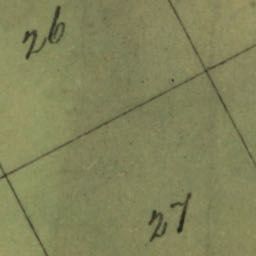 26
27